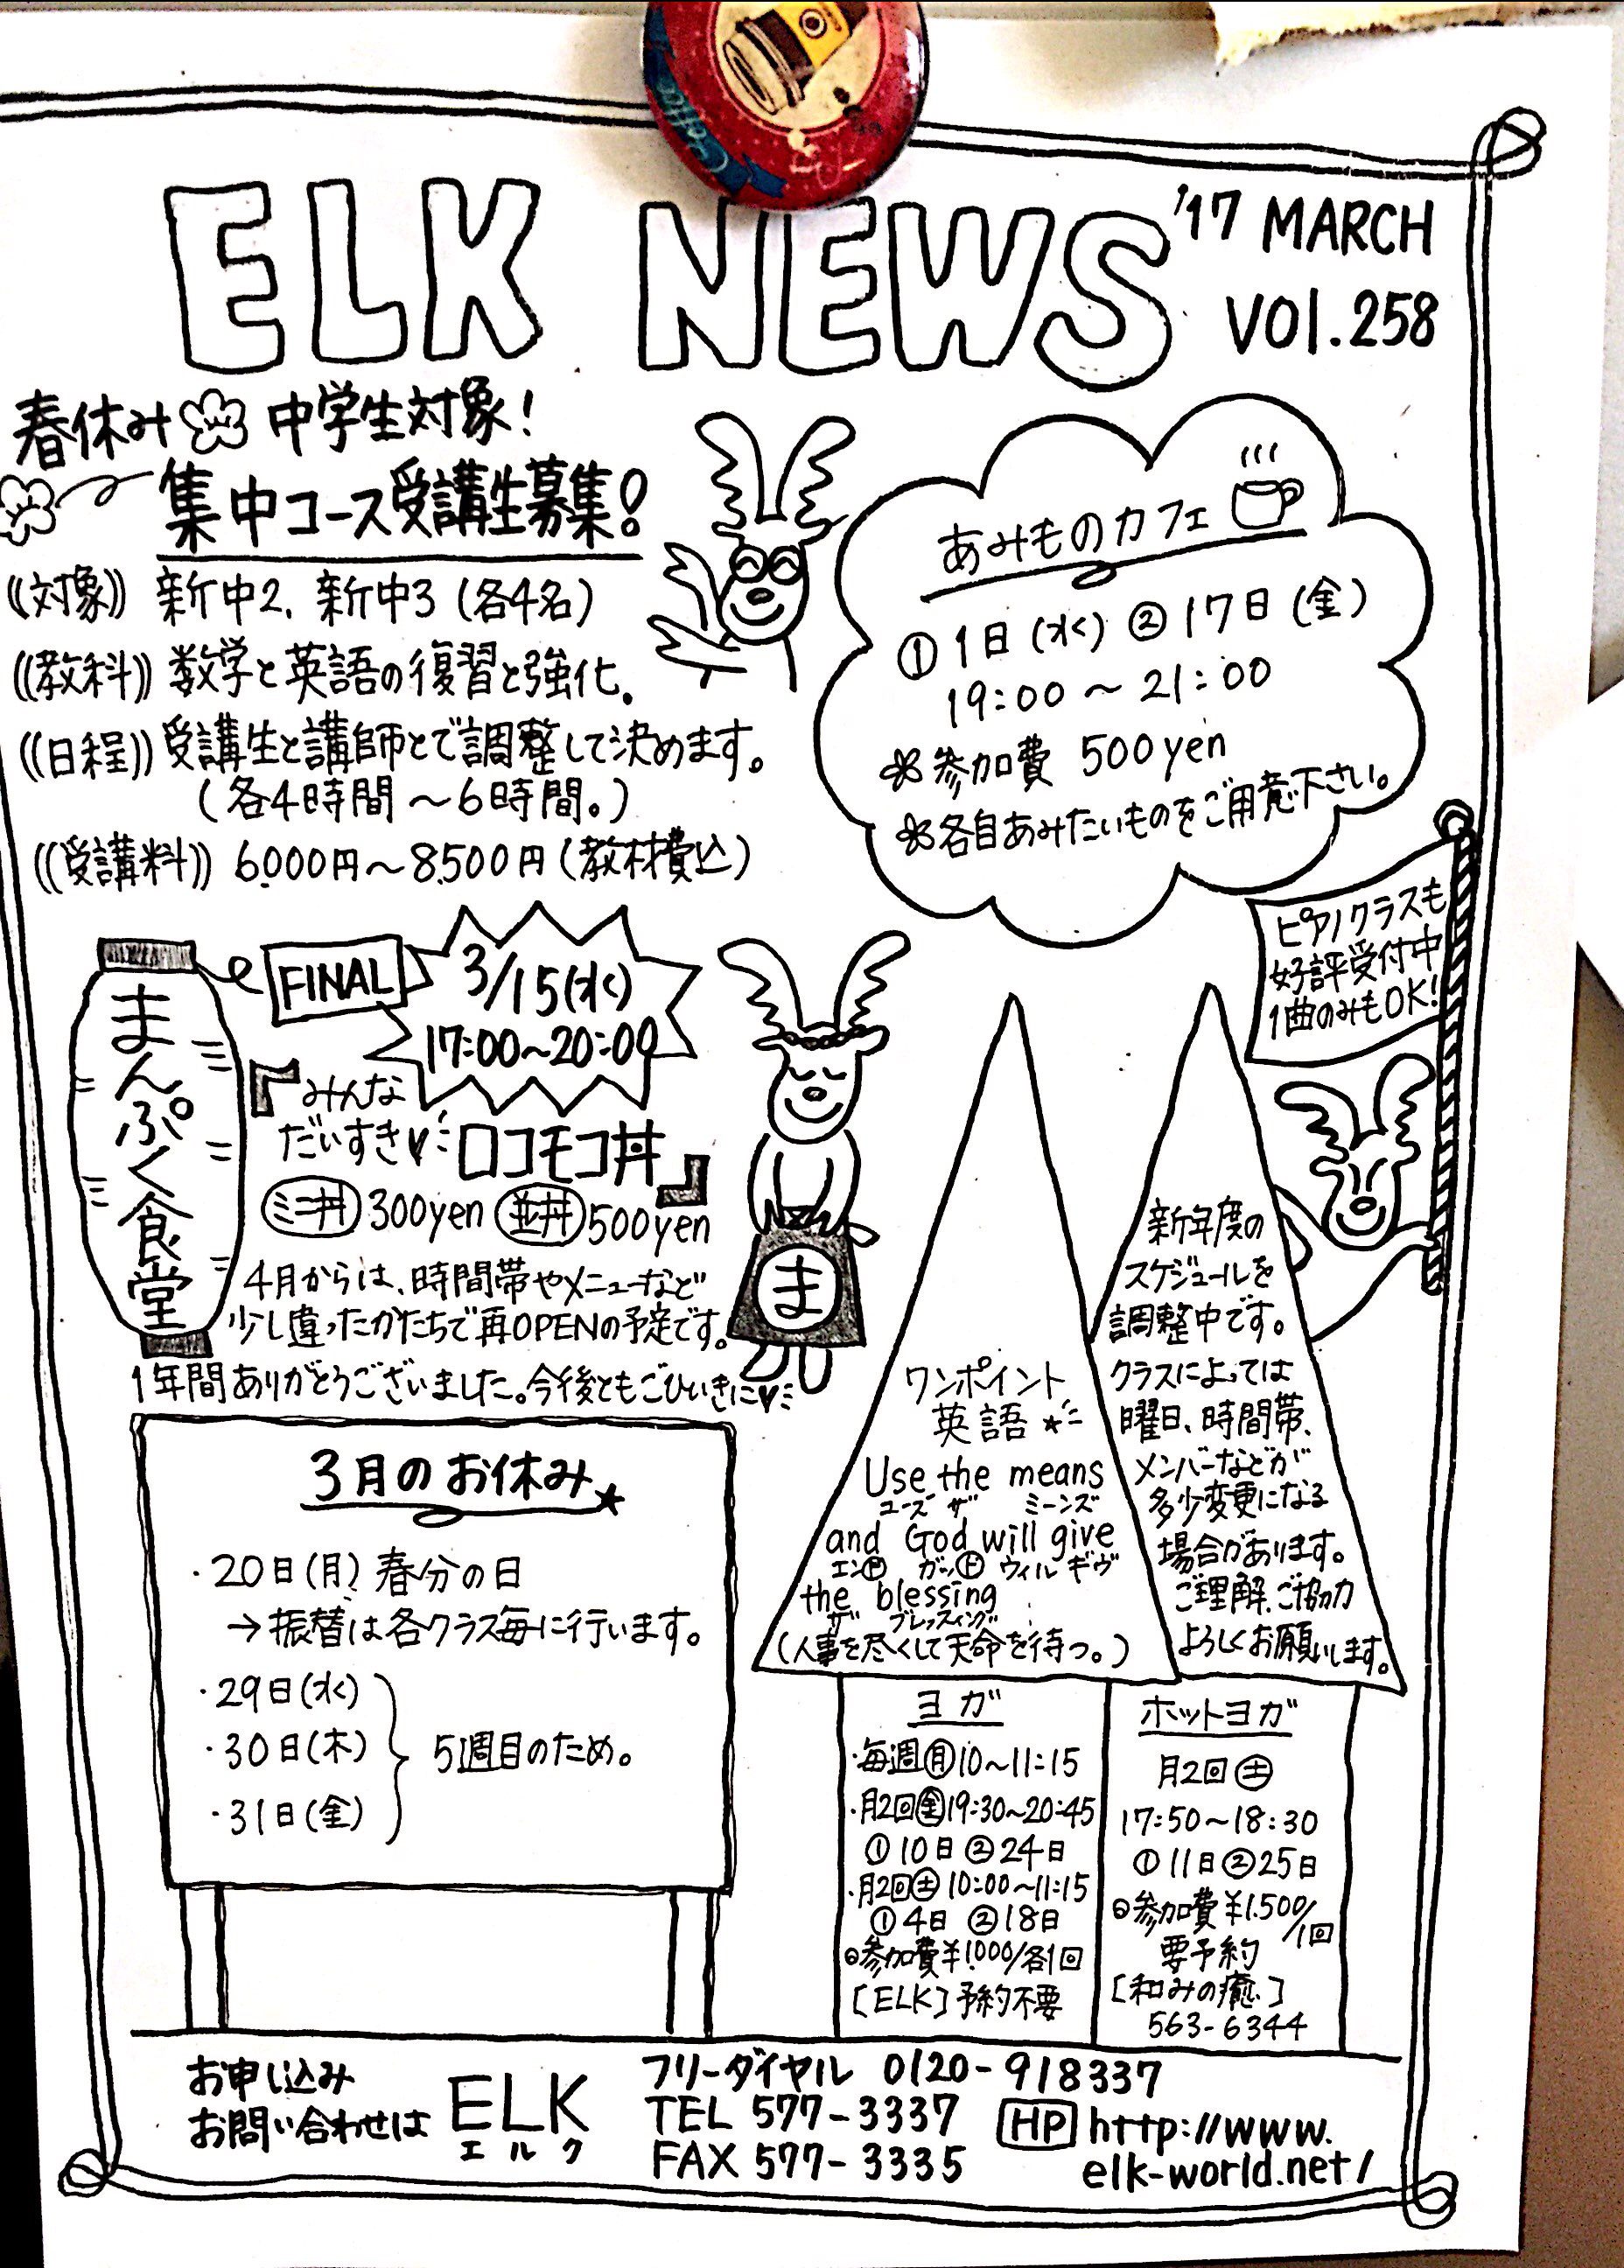 ELK NEWS
'17 MARCH
VOl.258
春休み 中学生対象!
集中コース受講生募集!
《対象》 新中2、新中3 (各4名)
《教科》 数学と英語の復習と強化。
《日程》 受講生と講師とで調整して決めます。
(各4時間〜6時間。)
《受講料》 6,000円〜8,500円(教材費込)
あみものカフェ
① 1日(水) ② 17日(金)
19:00〜21:00
参加費 500yen
各自あみたいものをご用意下さい。
ピアノクラスも
好評受付中
1曲のみもOK!
まんぷく食堂
FINAL
3/15(水)
17:00〜20:00
『みんな
だいすき♥ロコモコ丼』
ミニ丼 300yen 並丼 500yen
4月からは、時間帯やメニューなど
少し違ったかたちで再OPENの予定です。
1年間ありがとうございました。今後ともごひいきに♥
ま
3月のお休み★
・20日(月) 春分の日
→振替は各クラス毎に行います。
・29日(水)
・30日(木)
・31日(金)
5週目のため。
ワンポイント
英語★
Use the means
ユーズ ザ ミーンズ
and God will give
エンド ガッド ウィル ギヴ
the blessing
ザ ブレッスィング
(人事を尽くして天命を待つ。)
新年度の
スケジュールを
調整中です。
クラスによっては
曜日、時間帯、
メンバーなどが
多少変更になる
場合があります。
ご理解、ご協力
よろしくお願いします。
ヨガ
・毎週㊊10〜11:15
・月2回㊎19:30〜20:45
①10日②24日
・月2回㊏10:00〜11:15
①4日 ②18日
参加費¥1,000/各1回
[ELK]予約不要
ホットヨガ
月2回㊏
17:50〜18:30
①11日②25日
参加費¥1,500/1回
要予約
[和みの癒]
563-6344
お申し込み
お問い合わせは
ELK
エルク
フリーダイヤル 0120-918337
TEL 577-3337
FAX 577-3335
HP http://www.
elk-world.net/